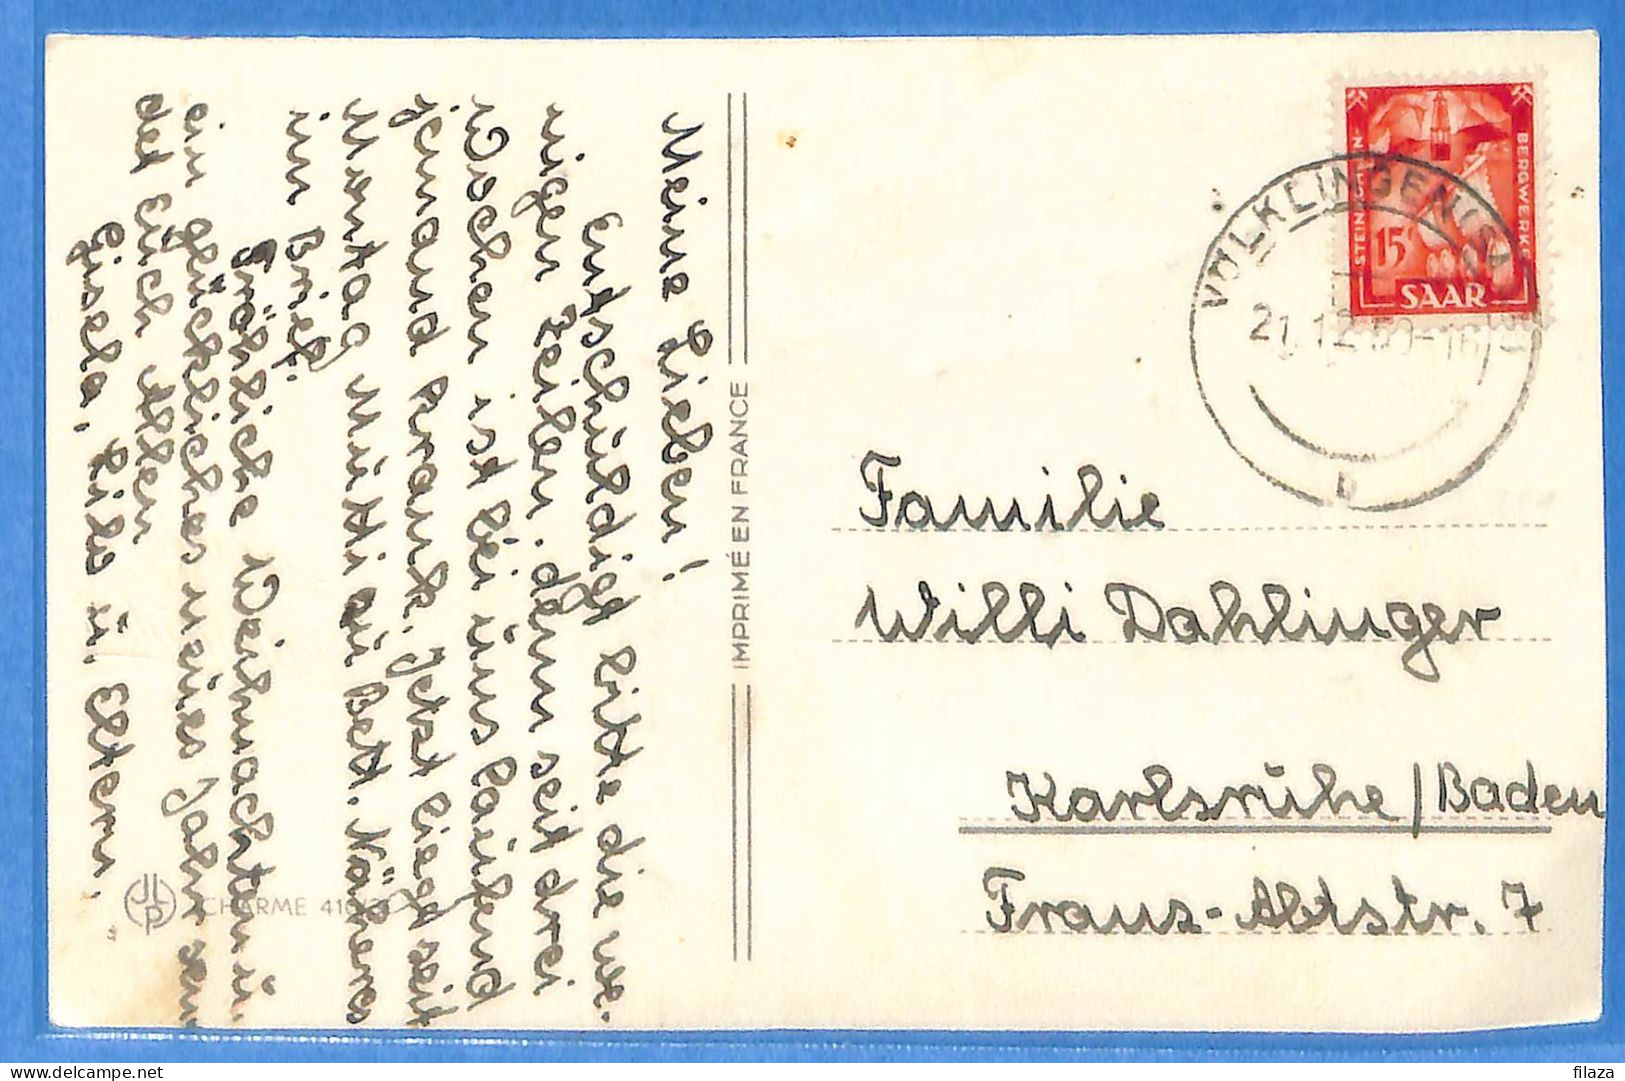 Meine Lieben!
Entschuldigt bitte die we-
nigen Zeilen, denn seit drei
Wochen ist bei uns laufend
jemand krank. Jetzt liegt seit
Montag Mutti zu Bett. Näheres
im Brief.
Fröhliche Weihnachten u.
ein glückliches neues Jahr sen
det Euch Allen
Gisela, Lilo u. Eltern.
CHARME
IMPRIMÉ EN FRANCE
STEINKOHLEN
BERGWERKE
15F
SAAR
VÖLKLINGEN (SAAR)
21.12.50-16
b
Familie
Willi Dahlinger
Karlsruhe/Baden
Franz-Abtstr. 7
filaza